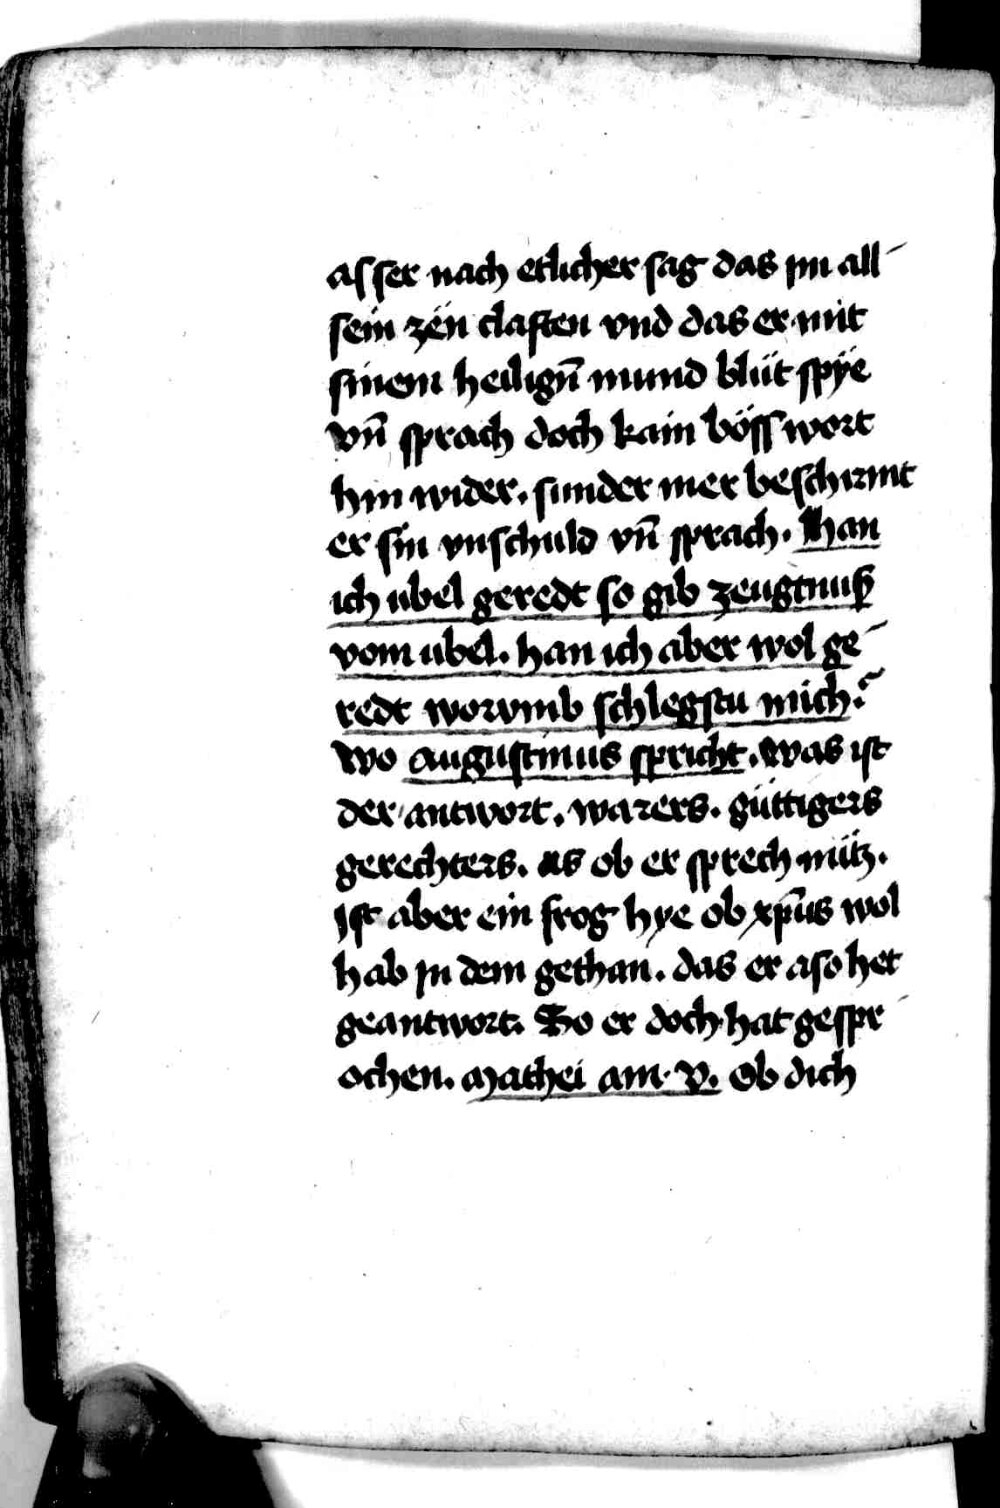 asser nach etlicher sag das im all
sein zën claften vnd das er mit
sinem heilign̄ mund blüt spÿe
vn̄ sprach doch kain böss wort
hin wider. sunder mer beschirmt
er sin vnschuld vn̄ sprach. Han
ich ubel geredt so gib zeugtnuß
vom ubel. han ich aber wol ge
redt worvmb schlegstu mich?
wo augustinus spricht. was ist
der antwort. warers. güttigers
gerechters. as ob er sprech nütz.
Ist aber ein frog hye ob xp̄us wol
hab in dem gethan. das er aso het
geantwort. So er doch hat gespr
ochen. Mathei am. v. Ob dich